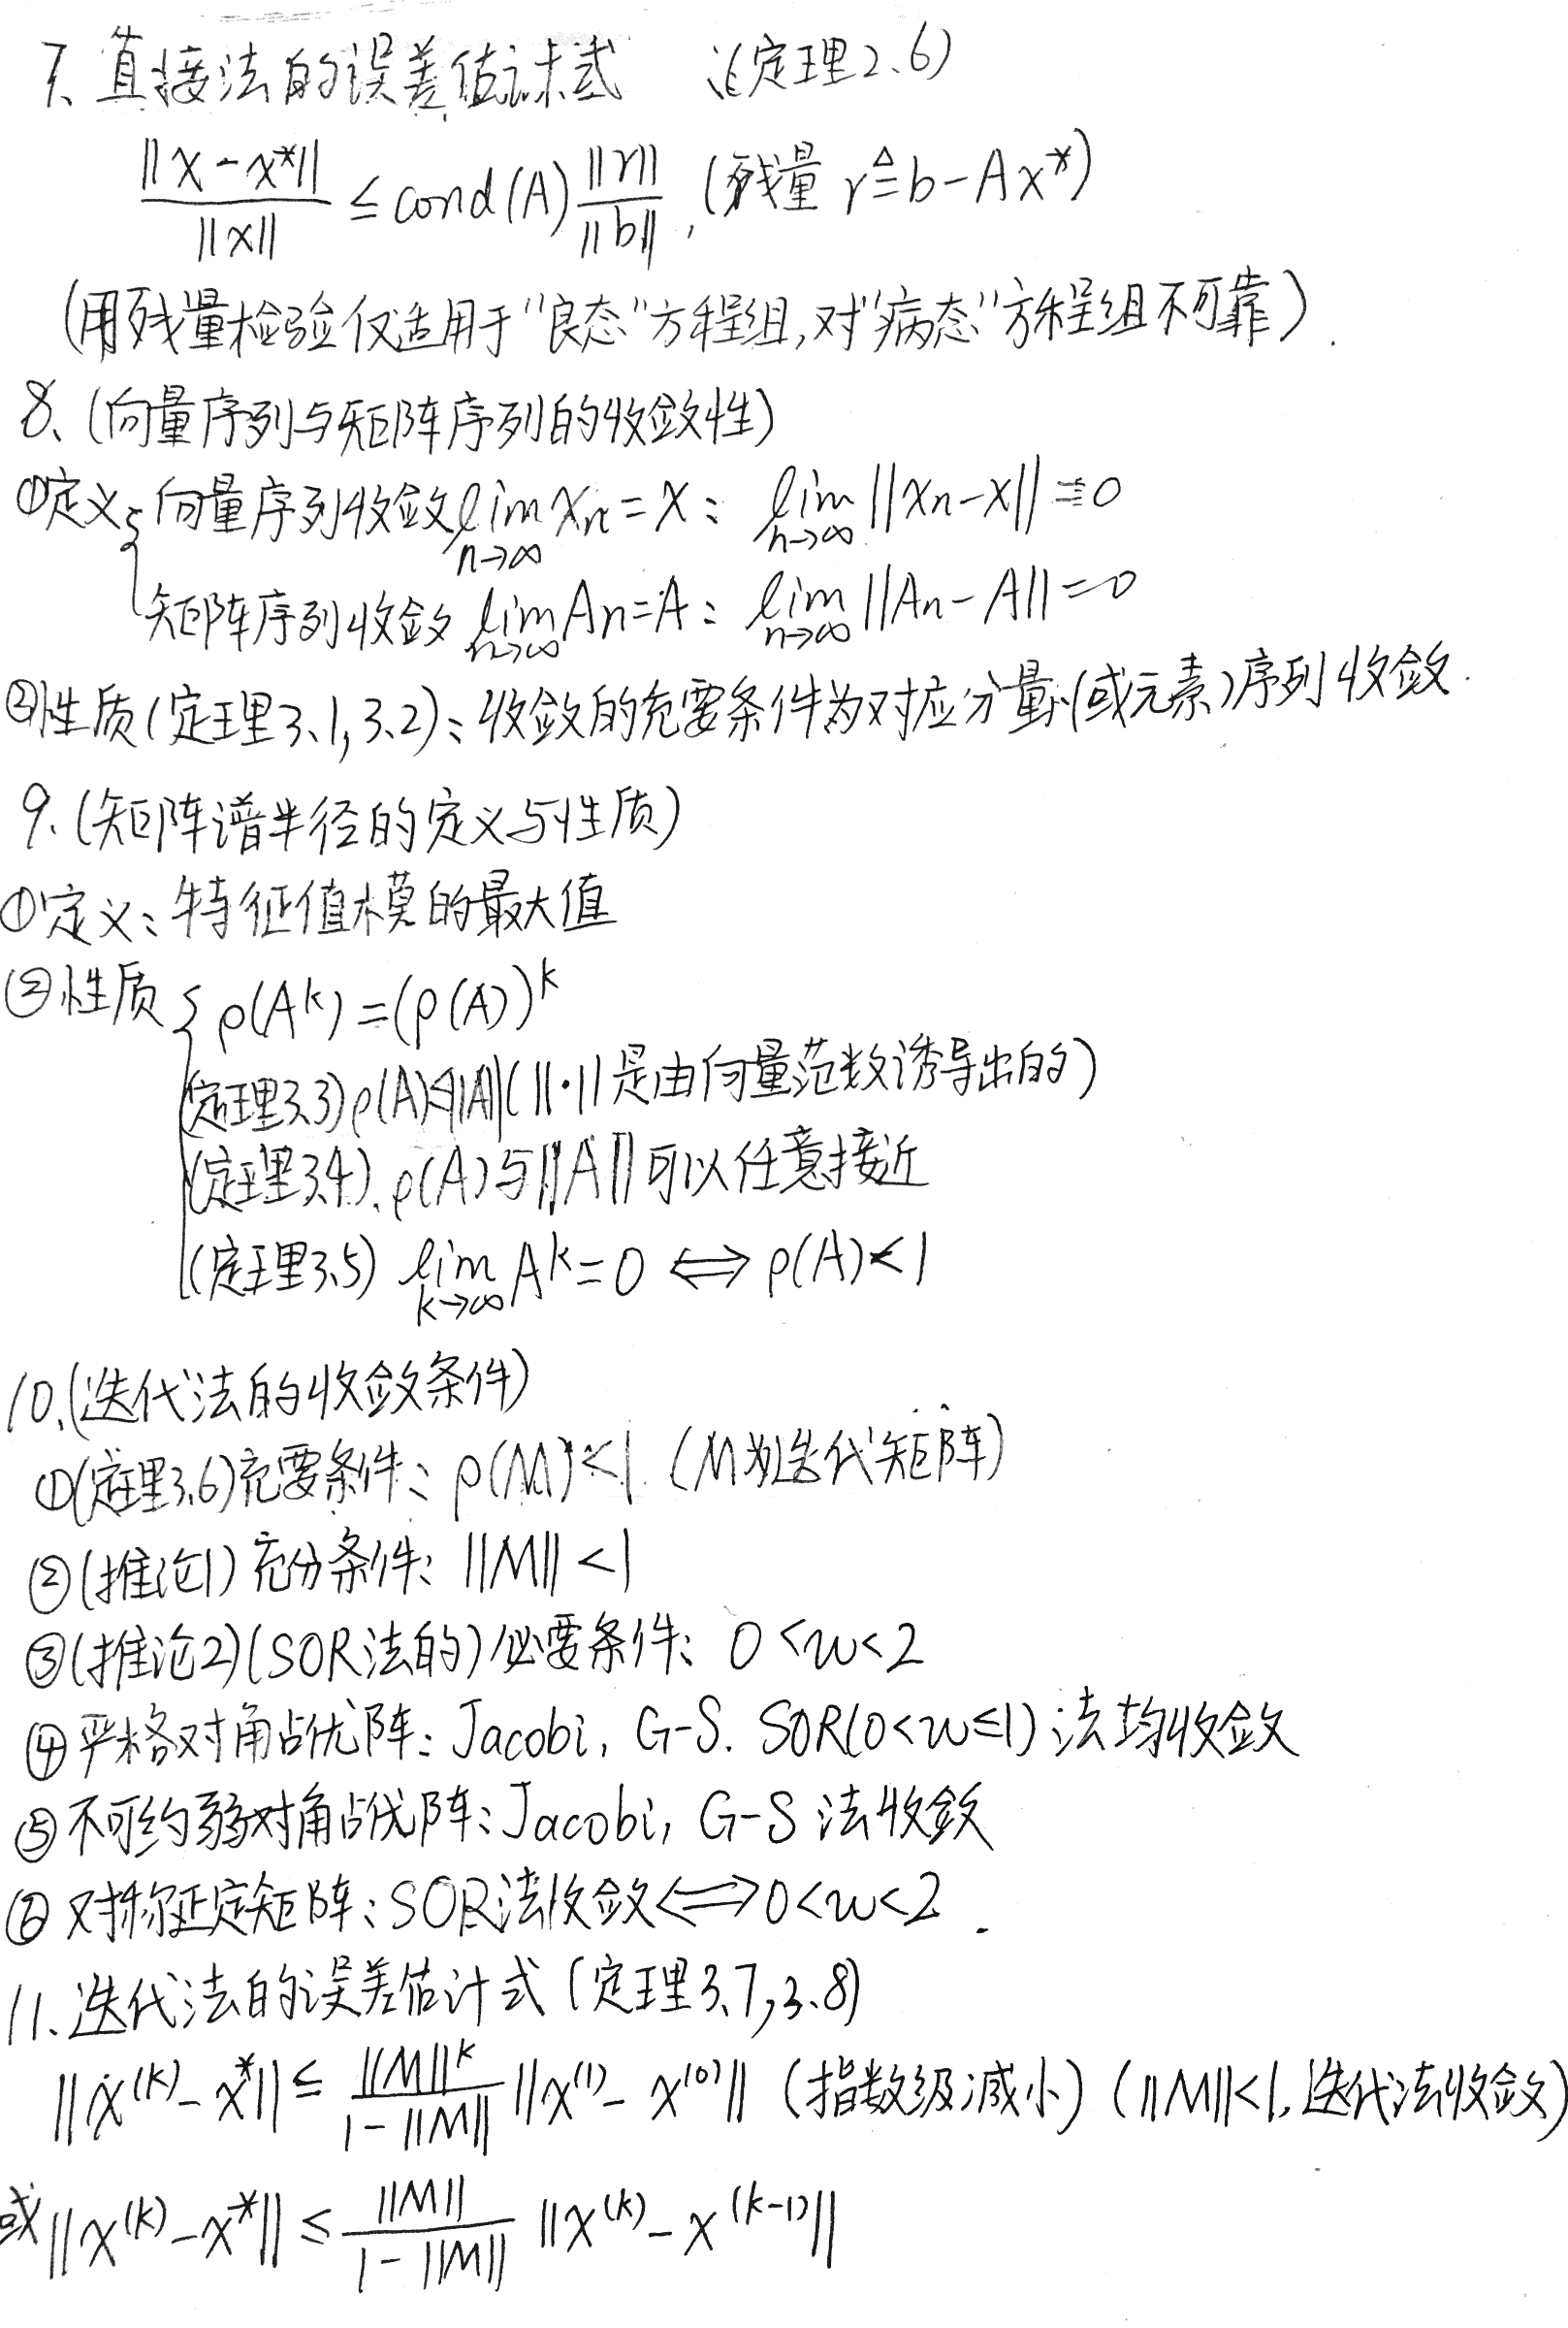 7、直接法的误差估计式 (定理2.6)
||x-x*||/||x|| ≤ cond(A) ||r||/||b||, (残量 r≜b-Ax*)
(用残量检验仅适用于"良态"方程组,对"病态"方程组不可靠).
8、(向量序列与矩阵序列的收敛性)
①定义{向量序列收敛 lim_{n→∞} Xn=X: lim_{n→∞} ||Xn-X||=0
矩阵序列收敛 lim_{n→∞} An=A: lim_{n→∞} ||An-A||=0
②性质(定理3.1,3.2):收敛的充要条件为对应分量(或元素)序列收敛.
9.(矩阵谱半径的定义与性质)
①定义:特征值模的最大值
②性质{ρ(A^k)=(ρ(A))^k
(定理3.3)ρ(A)≤||A||(||·||是由向量范数诱导出的)
(定理3.4).ρ(A)与||A||可以任意接近
(定理3.5) lim_{k→∞} A^k=0 ⟺ ρ(A)<1
10.(迭代法的收敛条件)
①(定理3.6)充要条件:ρ(M)<1 (M为迭代矩阵)
②(推论1)充分条件:||M||<1
③(推论2)(SOR法的)必要条件:0<w<2
④严格对角占优阵:Jacobi,G-S.SOR(0<w≤1)法均收敛
⑤不可约弱对角占优阵:Jacobi,G-S法收敛
⑥对称正定矩阵:SOR法收敛⟺0<w<2.
11.迭代法的误差估计式(定理3.7,3.8)
||x^(k)-x*|| ≤ ||M||^k/(1-||M||) ||x^(1)-x^(0)|| (指数级减小) (||M||<1,迭代法收敛)
或||x^(k)-x*|| ≤ ||M||/(1-||M||) ||x^(k)-x^(k-1)||